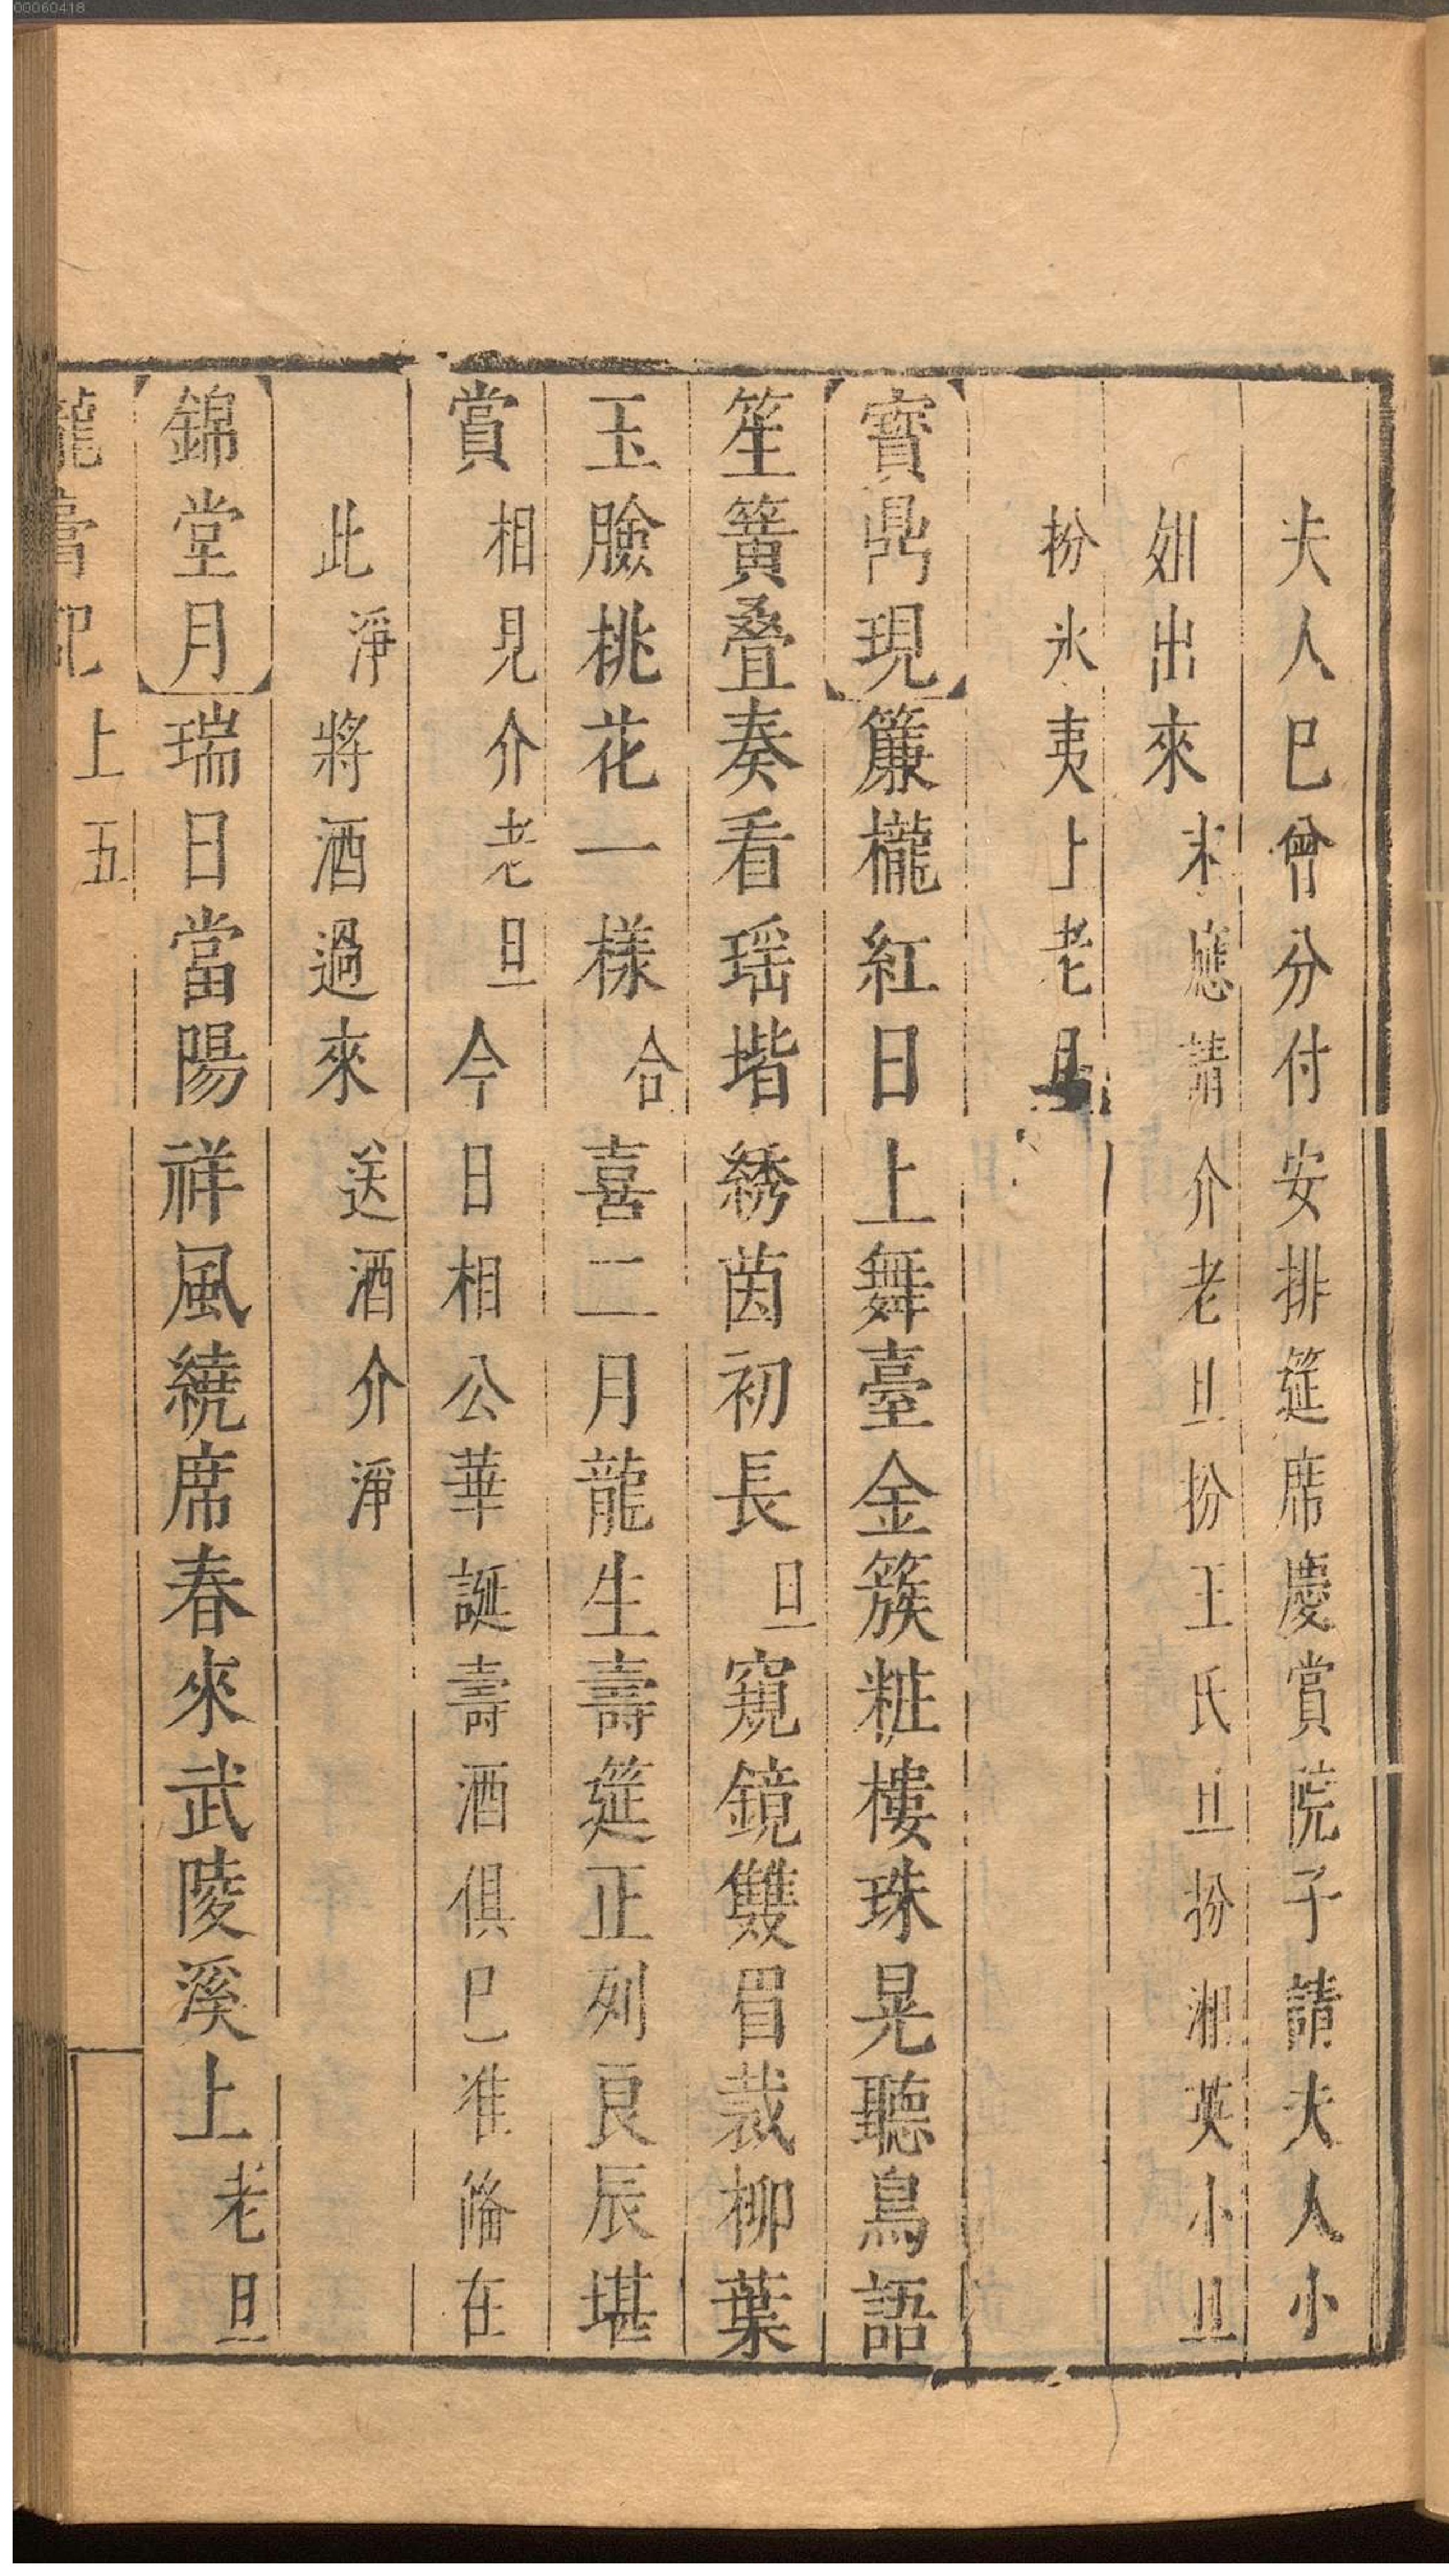 00060418
夫人已曾分付安排筵席慶賞院子請夫人小
如出來末應請介老旦扮王氏旦扮湘英小旦
扮氷夷上老旦
【寳鼎現】簾櫳紅日上舞臺金簇粧樓珠晃聽鳥語
笙簧叠奏看瑶堦綉茵初長旦窺鏡雙眉裁柳葉
玉臉桃花一樣合喜二月龍生壽筵正列良辰堪
賞相見介老旦今日相公華誕壽酒俱已准俻在
此淨將酒過來送酒介淨
【錦堂月】瑞日當陽祥風繞席春來武陵溪上老旦
龍膏記上五